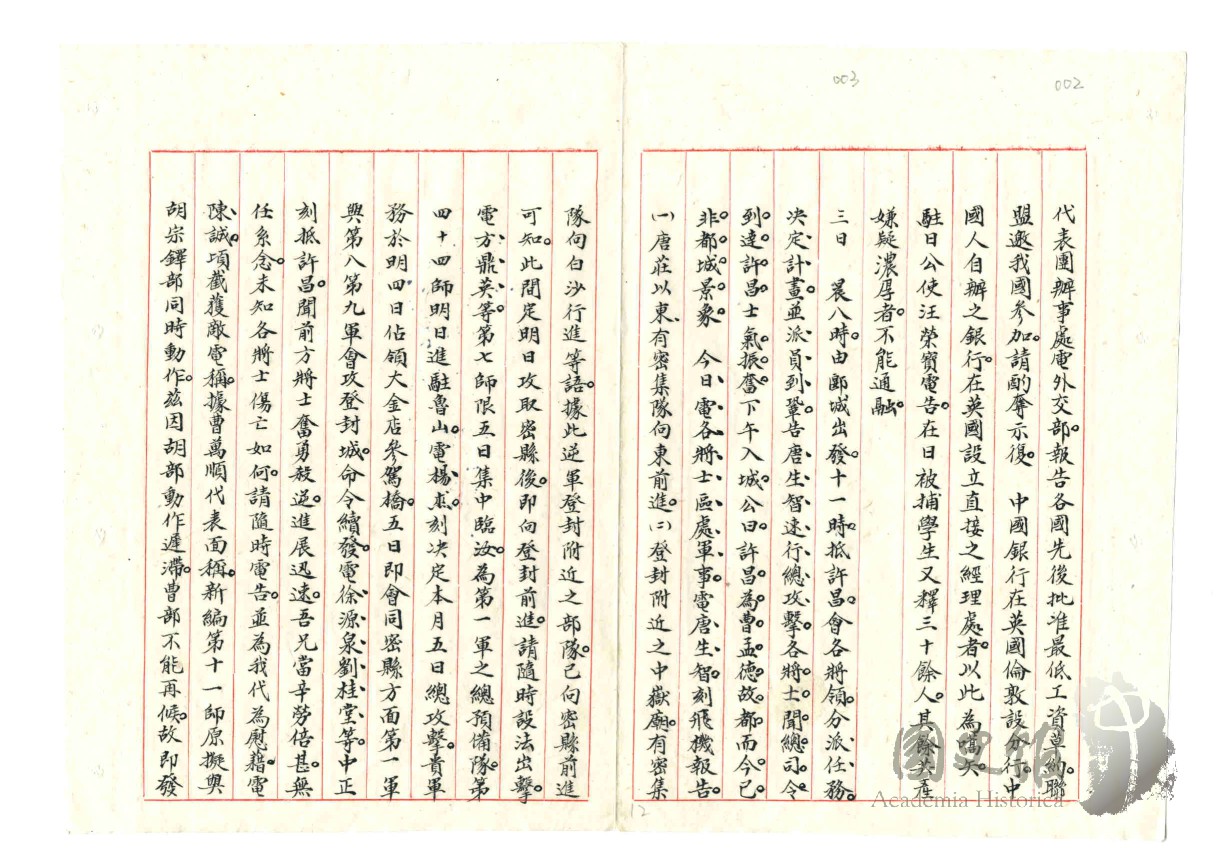 002
003
代表團辦事處電外交部。報告各國先後批准最低工資草約。聯
盟邀我國參加。請酌奪示復。　中國銀行在英國倫敦設分行。中
國人自辦之銀行。在英國設立直接之經理處者。以此為嚆矢。
駐日公使汪榮寶電告。在日被捕學生又釋三十餘人。其餘共產
嫌疑濃厚者。不能通融。
三日　晨八時。由郾城出發。十一時抵許昌。會各將領分派任務。
決定計畫。並派員到鞏告唐生智速行總攻擊。各將士聞總司令
到達許昌。士氣振奮。下午入城。公曰許昌為曹孟德故都。而今已
非都城景象。　今日電各將士區處軍事。電唐生智。刻飛機報告。
㈠唐莊以東。有密集隊向東前進。㈡登封附近之中嶽廟。有密集
隊向白沙行進等語。據此逆軍登封附近之部隊。已向密縣前進
可知。此間定明日攻取密縣後。即向登封前進。請隨時設法出擊。
電方鼎英等。第七師限五日集中臨汝。為第一軍之總預備隊。第
四十四師明日進駐魯山。電楊杰。刻決定本月五日總攻擊。貴軍
務於明四日佔領大金店參駕橋。五日即會同密縣方面第一軍
與第八第九軍會攻登封城。命令續發。電徐源泉劉桂堂等。中正
刻抵許昌。聞前方將士奮勇殺逆。進展迅速。吾兄當辛勞倍甚。無
任系念。未知各將士傷亡如何。請隨時電告。並為我代為慰藉。電
陳誠。頃截獲敵電稱。據曹萬順代表面稱。新編第十一師原擬與
胡宗鐸部同時動作。茲因胡部動作遲滯。曹部不能再候。故即發
12
國史館
Academia Historica